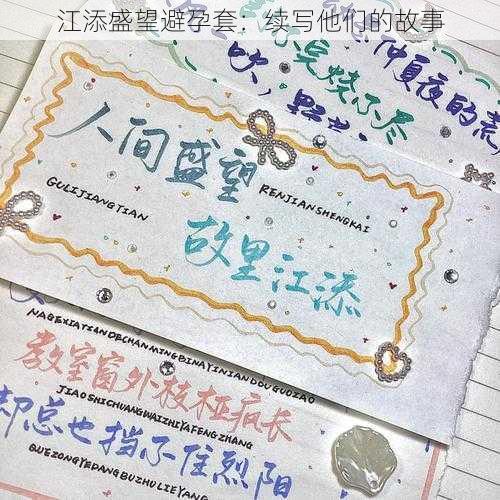 江添盛望避孕套：续写他们的故事
仲夏夜的
烧不尽
吹，野
人间盛望
GULIJIANGTIAN
RENJIANSHENGKAI
故里江添
NAGEXIATIANDECHANMINGBINAYINIANDOUGUOZAO
教室窗外枝桠疯长
JIAOSHICHUANGWAIZHIYAFENGZHANG
却总也挡不住烈阳
QUEZONGYEDANGBUZHULIEYANG